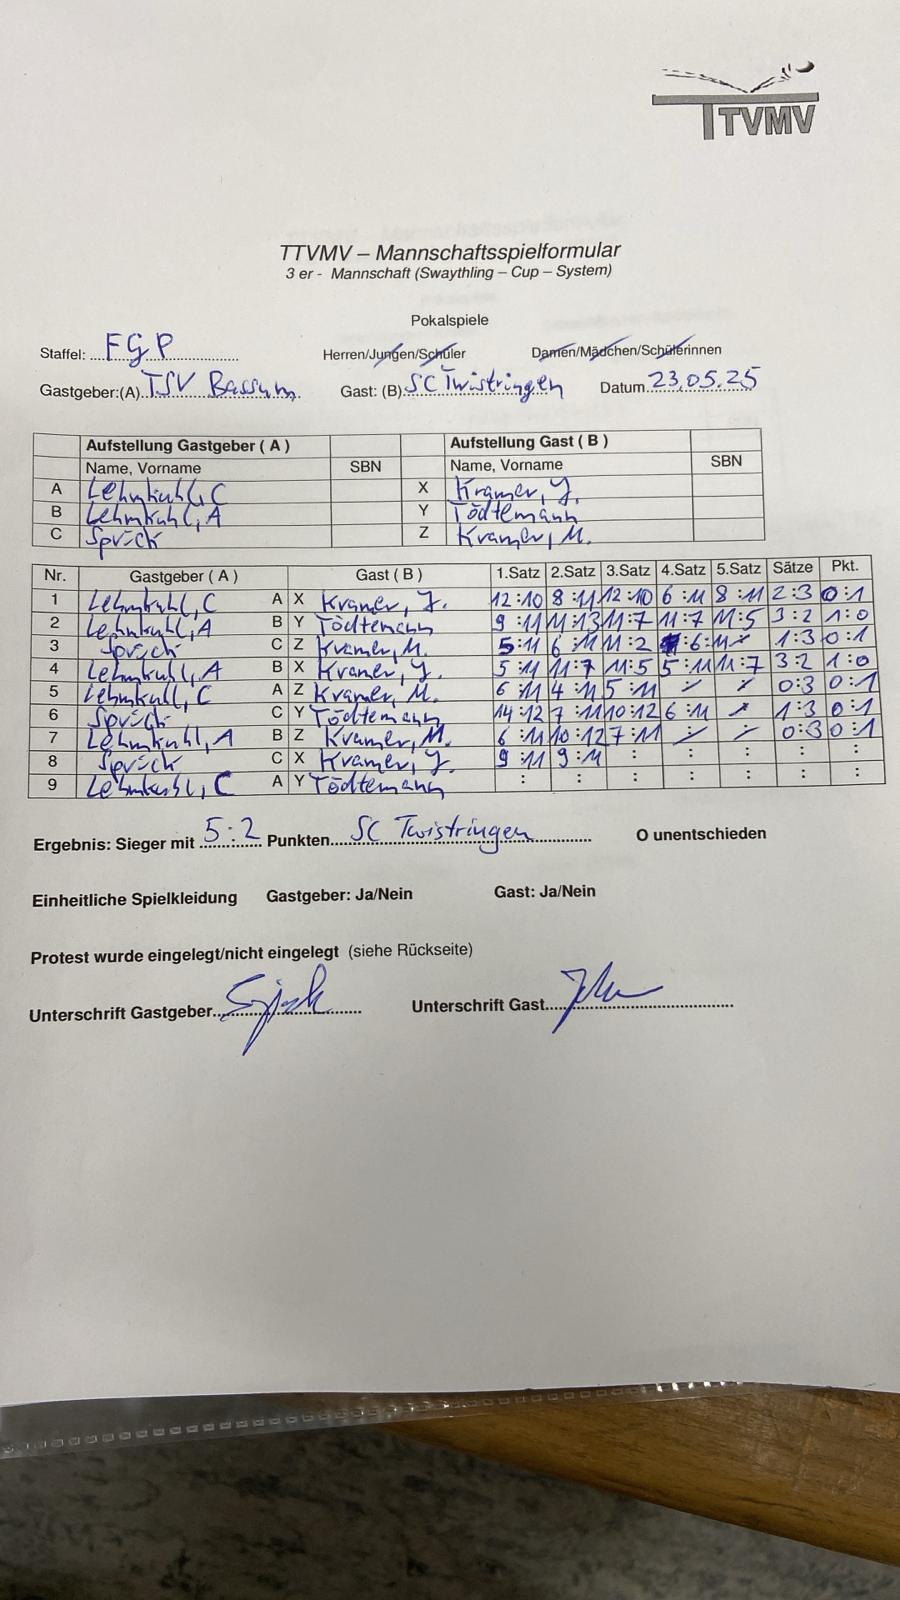 TTVMV
TTVMV – Mannschaftsspielformular
3 er - Mannschaft (Swaythling – Cup – System)
Pokalspiele
Staffel: FGP Herren/Jungen/Schüler Damen/Mädchen/Schülerinnen
Gastgeber:(A) TSV Bassum Gast: (B) SC Twistringen Datum 23.05.25
Aufstellung Gastgeber ( A ) Aufstellung Gast ( B )
Name, Vorname SBN Name, Vorname SBN
A Lehmkuhl, C X Kramer, J.
B Lehmkuhl, A Y Tödtemann
C Sprick Z Kramer, M.
Nr. Gastgeber ( A ) Gast ( B ) 1.Satz 2.Satz 3.Satz 4.Satz 5.Satz Sätze Pkt.
1 Lehmkuhl, C A X Kramer, J. 12:10 8:11 12:10 6:11 8:11 2:3 0:1
2 Lehmkuhl, A B Y Tödtemann 9:11 11:13 11:7 11:7 11:5 3:2 1:0
3 Sprick C Z Kramer, M. 5:11 6:11 11:2 6:11 : 1:3 0:1
4 Lehmkuhl, A B X Kramer, J. 5:11 11:7 11:5 5:11 11:7 3:2 1:0
5 Lehmkuhl, C A Z Kramer, M. 6:11 4:11 5:11 : : 0:3 0:1
6 Sprick C Y Tödtemann 14:12 7:11 10:12 6:11 : 1:3 0:1
7 Lehmkuhl, A B Z Kramer, M. 6:11 10:12 7:11 : : 0:3 0:1
8 Sprick C X Kramer, J. 9:11 9:11 : : : : :
9 Lehmkuhl, C A Y Tödtemann : : : : : : :
Ergebnis: Sieger mit 5:2 Punkten SC Twistringen O unentschieden
Einheitliche Spielkleidung Gastgeber: Ja/Nein Gast: Ja/Nein
Protest wurde eingelegt/nicht eingelegt (siehe Rückseite)
Unterschrift Gastgeber Unterschrift Gast